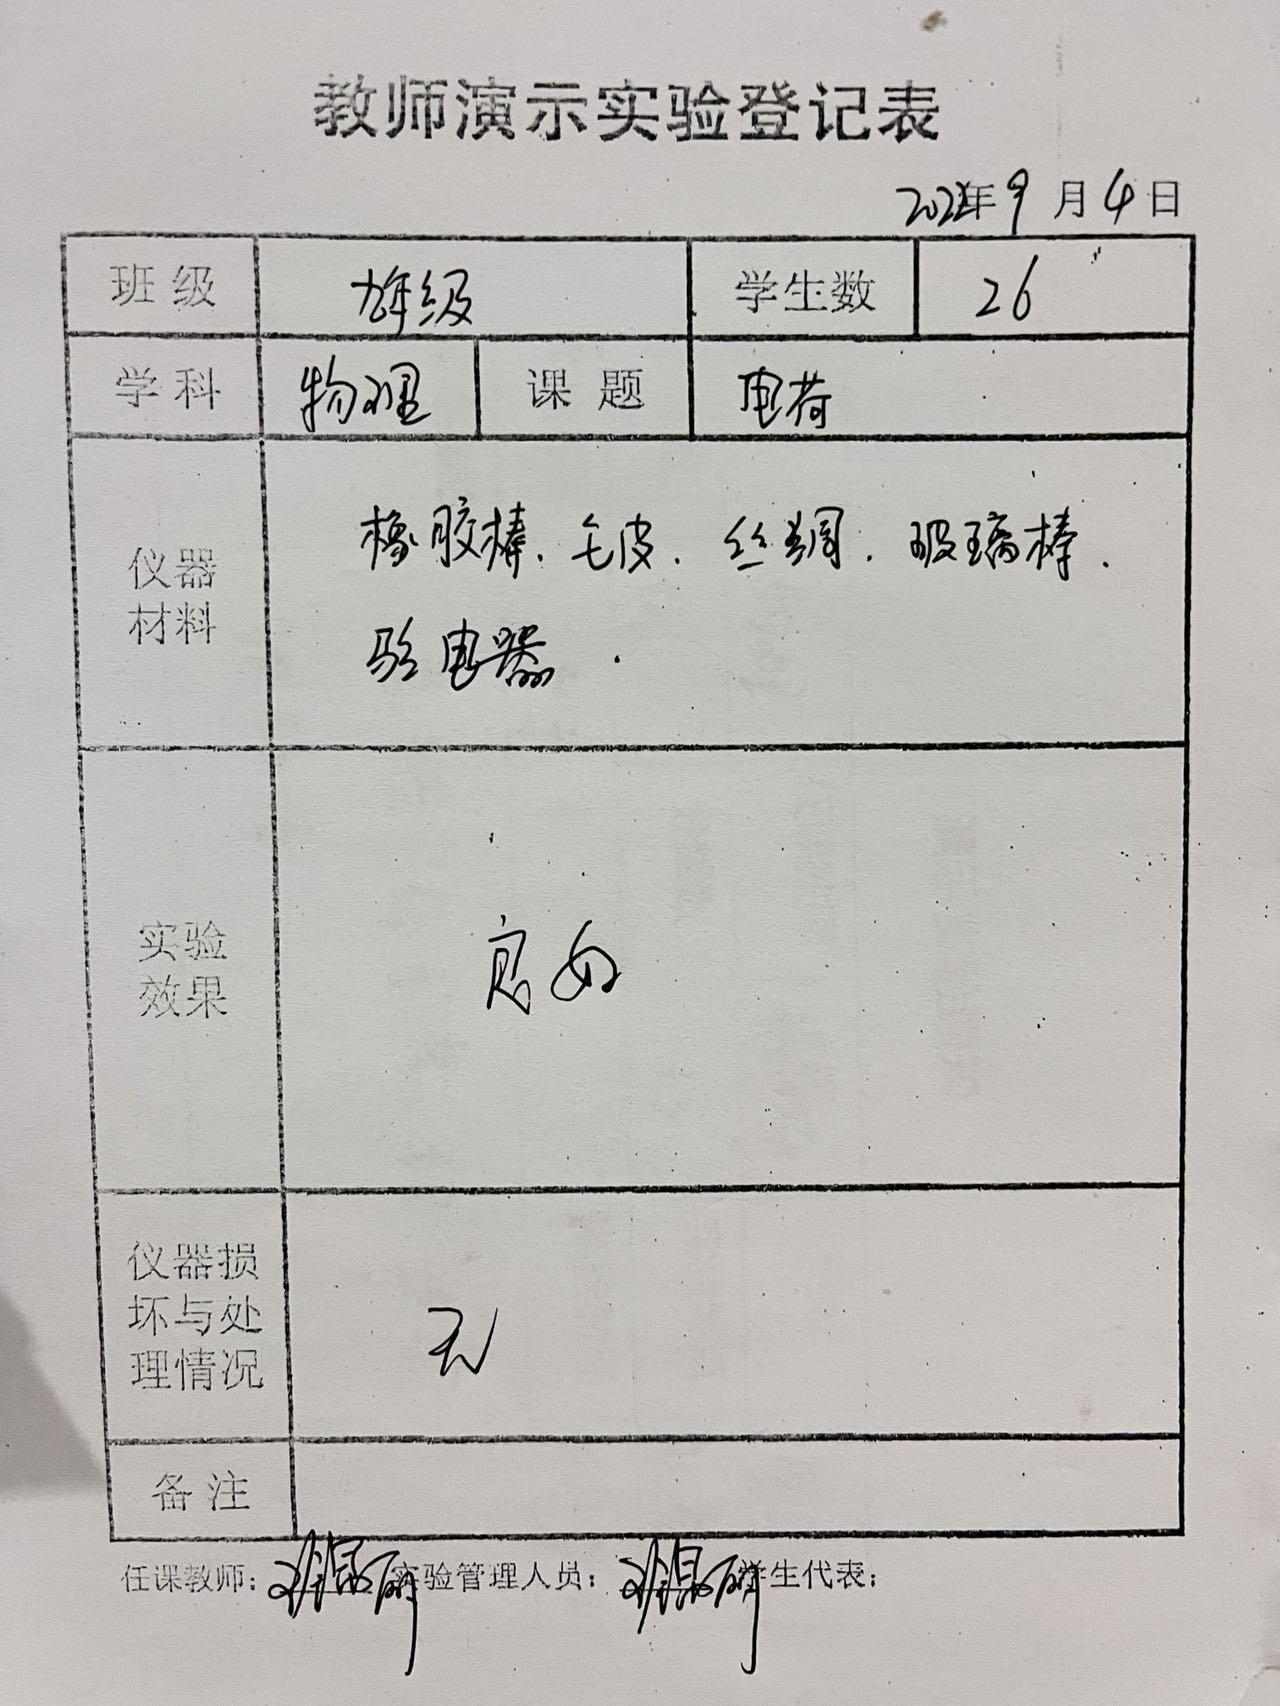 教师演示实验登记表
年9月4日
班级 九年级 学生数 26
学科 物理 课题 电荷
仪器材料
橡胶棒、毛皮、丝绸、玻璃棒、
验电器.
实验效果
良好
仪器损坏与处理情况
无
备注
任课教师: 实验管理人员: 学生代表: